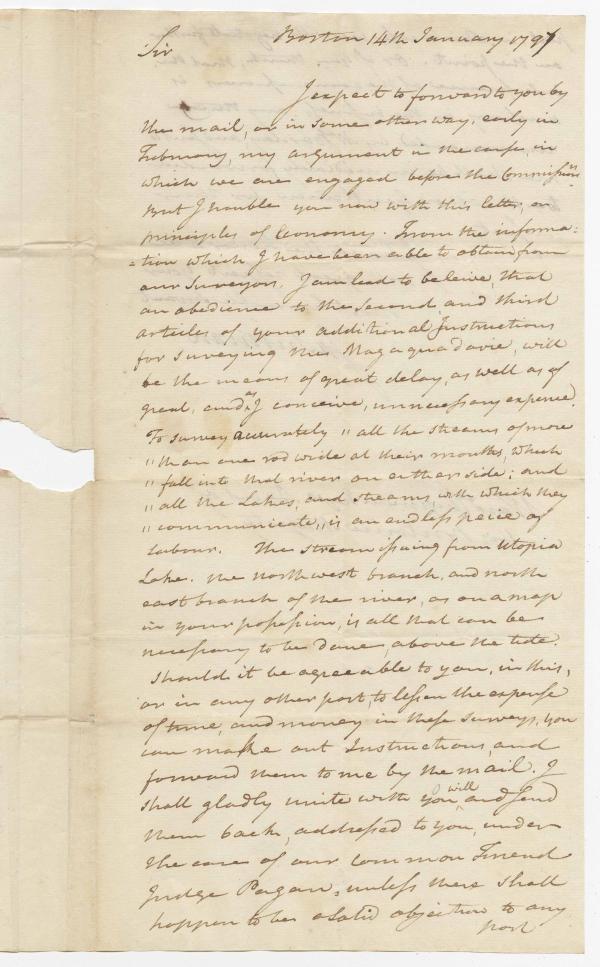 Boston 14th January 1797
Sir
I expect to forward to you by
the mail, or in some other way, early in
February, my argument in the cause, in
which we are engaged before the Commissrs.
But I trouble you now with this letter, on
principles of Economy. From the informa=
=tion which I have been able to obtain from
our Surveyors, I am lead to beleive, that
an obedience to the second, and third
articles of your additional Instructions
for surveying the Magaguadavic, will
be the means of great delay, as well as of
great, and as I conceive, unnecessary expence.
To survey accurately "all the streams of more
"than one rod wide at their mouths, which
"fall into that river on either side; and
"all the Lakes, and streams with which they
"communicate," is an endless peice of
Labour. The stream issuing from Utopia
Lake. the north west branch, and north
east branch of the river, as on a map
in your possession, is all that can be
necessary to be done, above the tide.
Should it be agreeable to you, in this,
or in any other part, to lessen the expense
of time, and money in these surveys, you
can make out Instructions, and
forward them to me by the mail. I
shall gladly unite with you, and will send
them back, addressed to you, under
the care of our common Friend
Judge Pagan, unless there shall
happen to be a solid objection to any
part